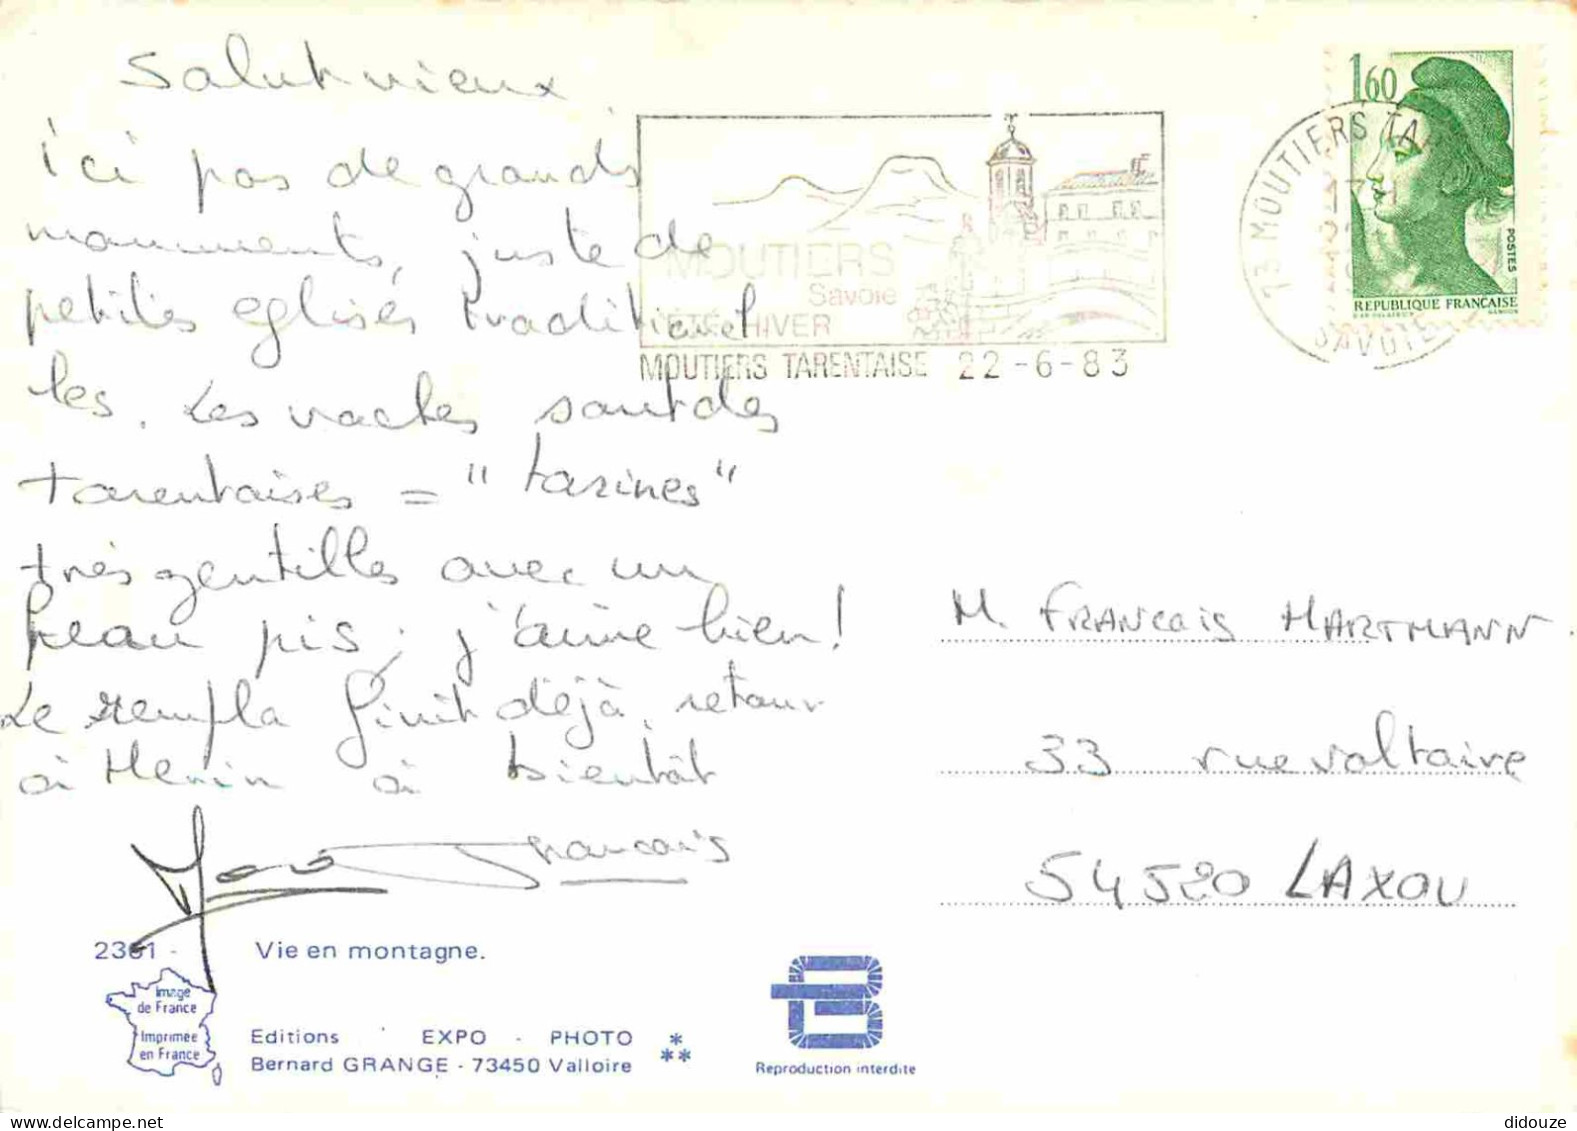 Salut vieux,
ici pas de grands
monuments, juste de
petites eglises traditionnel
les. Les vaches sont des
tarentaises = "tarines"
très gentilles avec un
beau pis, j'aime bien!
Le rempla finit déjà, retour
à Henin à bientôt
Francois
MOUTIERS
Savoie
ÉTÉ HIVER
MOUTIERS TARENTAISE 22-6-83
73 MOUTIERS TA
SAVOIE
1,60
POSTES
REPUBLIQUE FRANÇAISE
M. FRANCOIS HARTMANN
33 rue voltaire
54520 LAXOU
2361 - Vie en montagne.
Image
de France
Imprimée
en France
Editions EXPO - PHOTO
Bernard GRANGE - 73450 Valloire
***
Reproduction interdite
delcampe.net
didouze